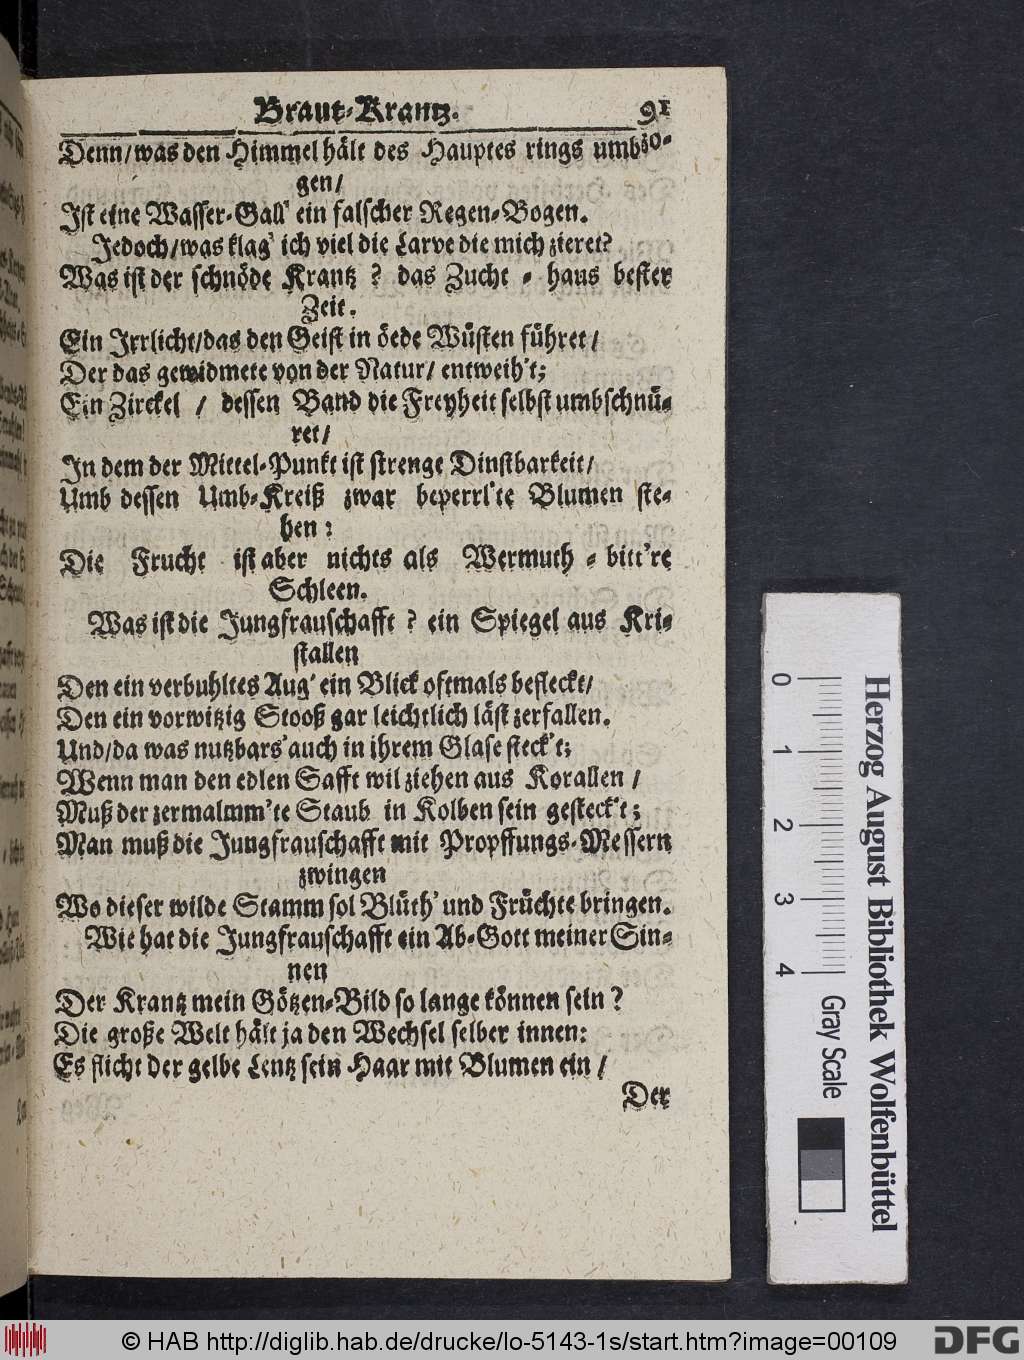 Braut-Krantz. 91
Denn/was den Himmel hält des Hauptes rings umbzo-
gen/
Ist eine Wasser-Gall' ein falscher Regen-Bogen.
Jedoch/was klag' ich viel die Larve die mich zieret?
Was ist der schnöde Krantz? das Zucht-haus bester
Zeit.
Ein Irrlicht/das den Geist in öede Wüsten führet/
Der das gewidmete von der Natur/ entweih't;
Ein Zirckel / dessen Band die Freyheit selbst umbschnü-
ret/
In dem der Mittel-Punkt ist strenge Dinstbarkeit/
Umb dessen Umb-Kreiß zwar beperrl'te Blumen ste-
hen:
Die Frucht ist aber nichts als Wermuth-bitt're
Schleen.
Was ist die Jungfrauschafft? ein Spiegel aus Kri-
stallen
Den ein verbuhltes Aug' ein Blick oftmals befleckt/
Den ein vorwitzig Stooß gar leichtlich läst zerfallen.
Und/da was nutzbars auch in ihrem Glase steck't;
Wenn man den edlen Safft wil ziehen aus Korallen /
Muß der zermalmm'te Staub in Kolben sein gesteck't;
Man muß die Jungfrauschafft mit Propffungs-Messern
zwingen
Wo dieser wilde Stamm sol Blüth' und Früchte bringen.
Wie hat die Jungfrauschafft ein Ab-Gott meiner Sin-
nen
Der Krantz mein Götzen-Bild so lange können seln?
Die große Welt hält ja den Wechsel selber innen:
Es flicht der gelbe Lentz sein Haar mit Blumen ein /
Der
0 1 2 3 4 Gray Scale
Herzog August Bibliothek Wolfenbüttel
© HAB http://diglib.hab.de/drucke/lo-5143-1s/start.htm?image=00109
DFG